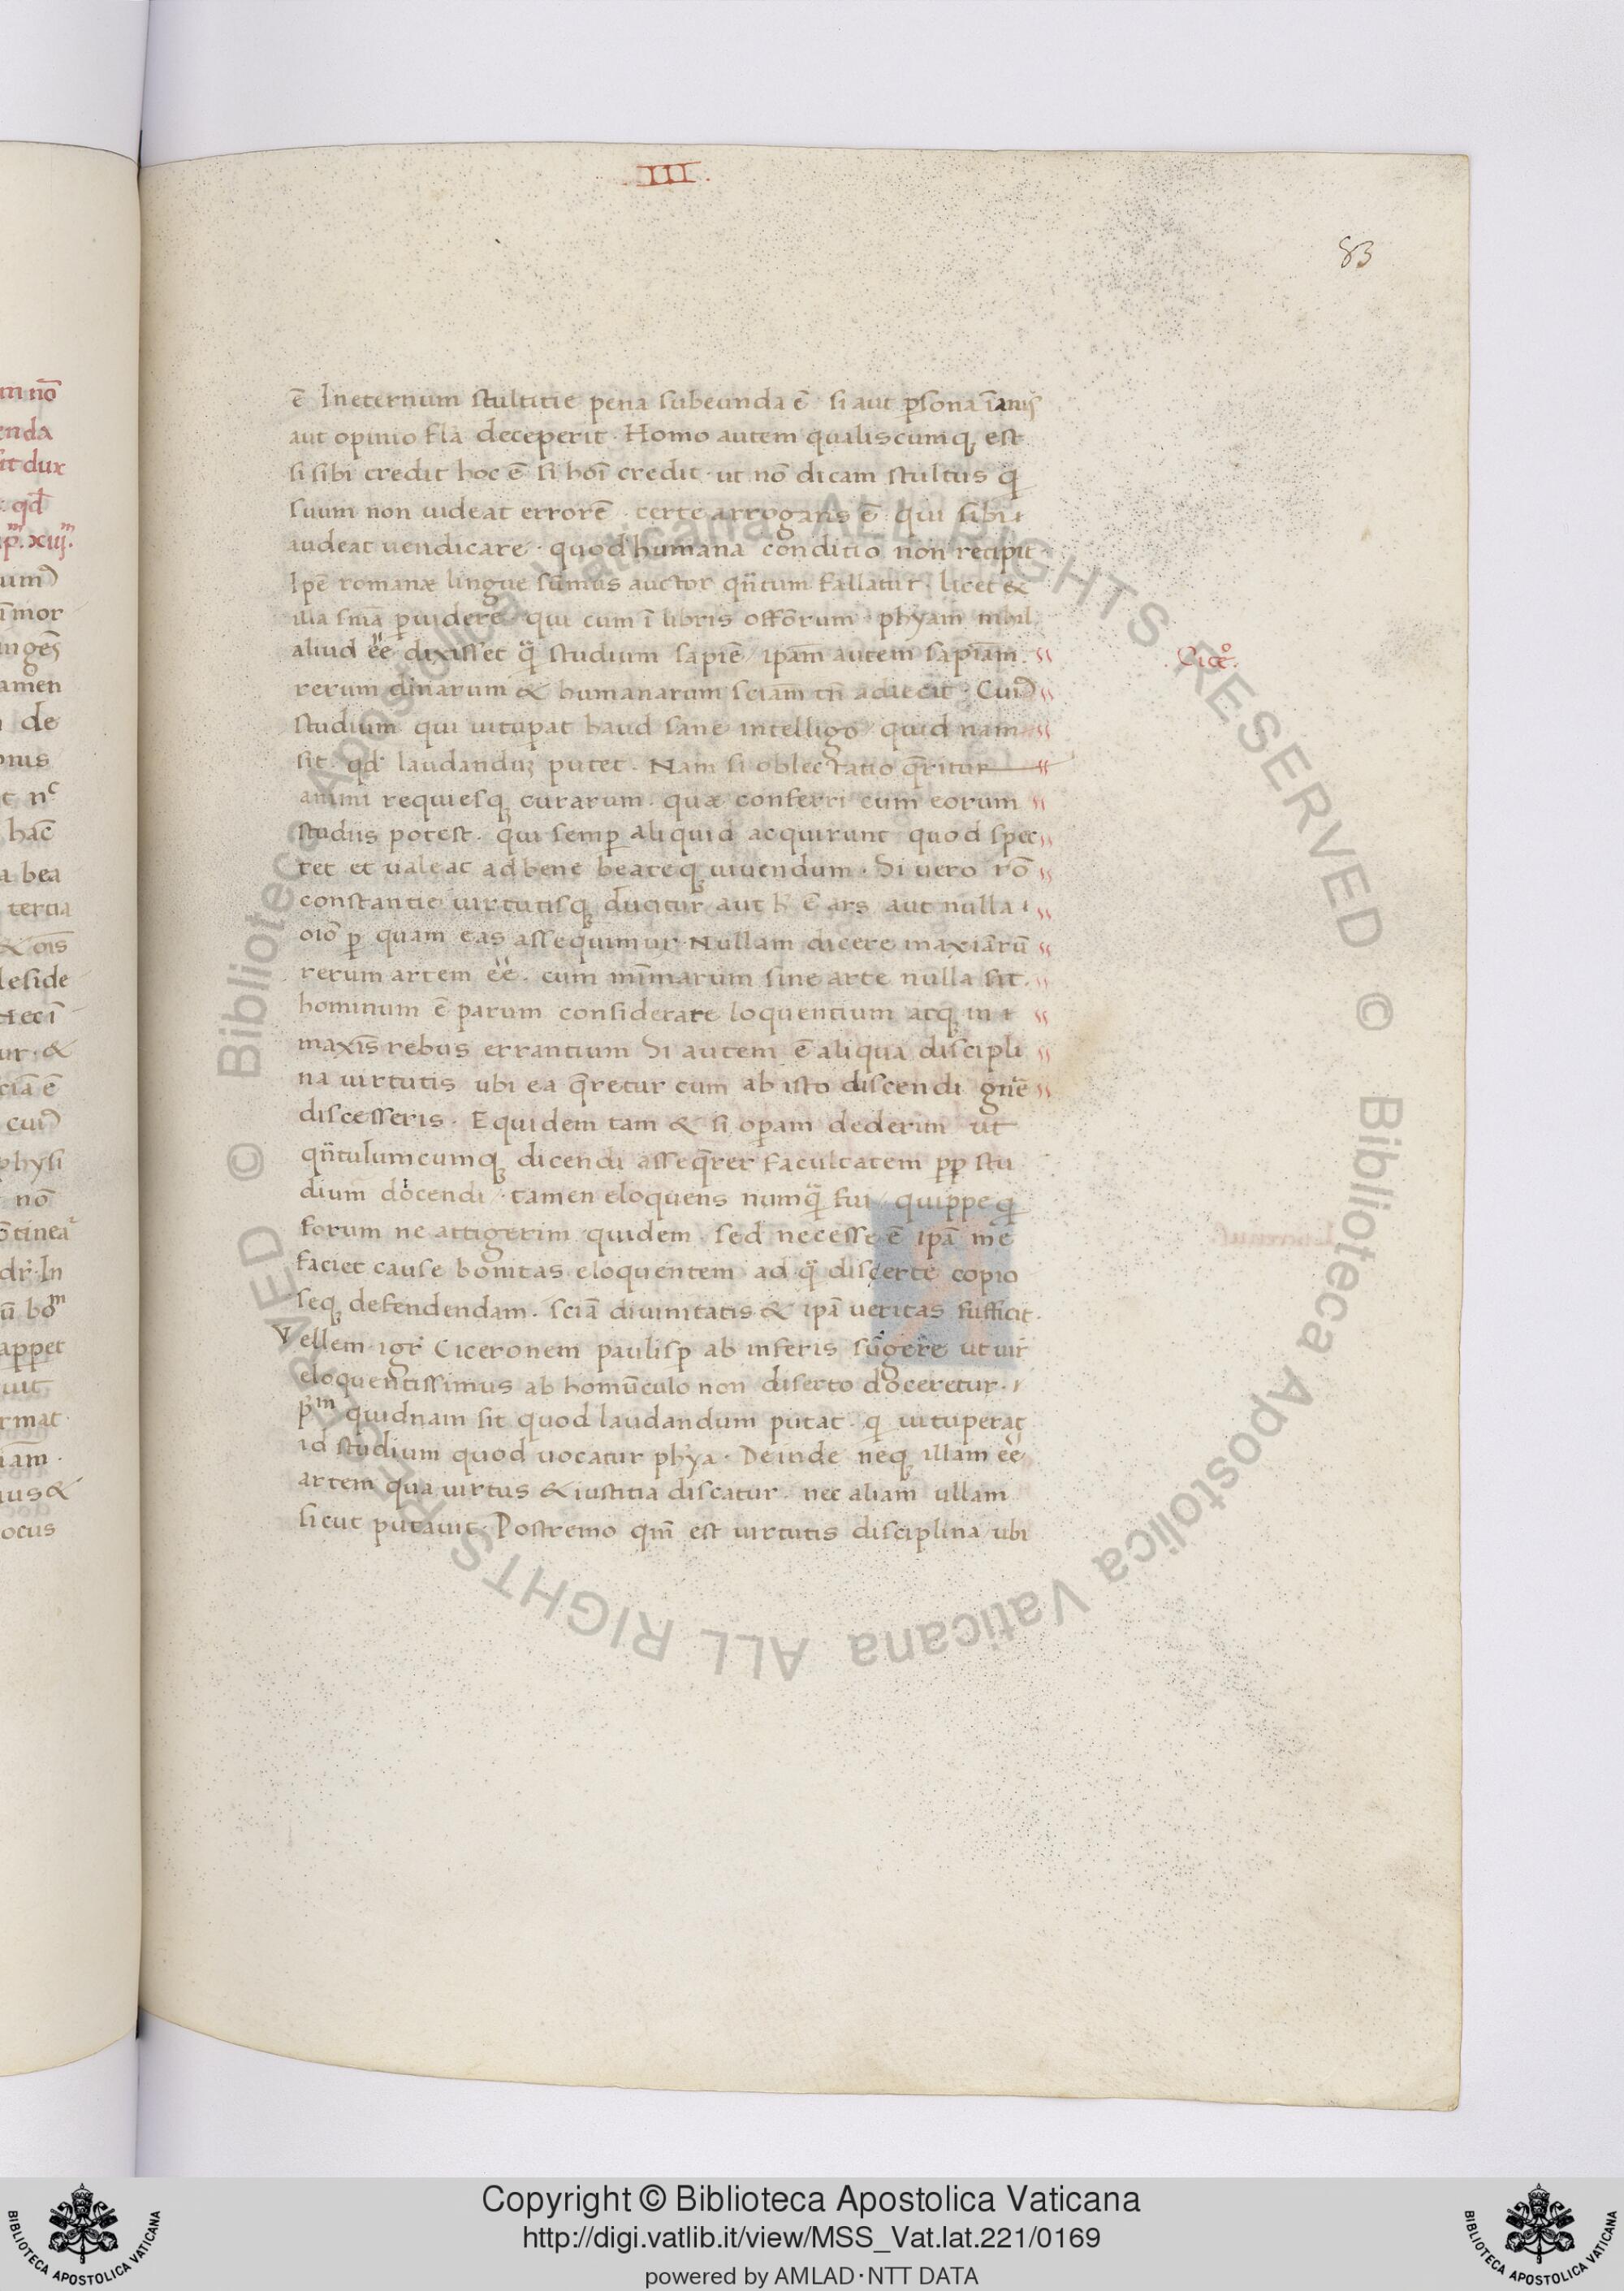 .III.
83
ē Ineternum stultitie pena subeunda ē · si aut ꝑsona īanis
aut opinio fla deceperit · Homo autem qualiscumqꝫ est
si sibi credit hoc ē si hoī credit · ut nō dicam stultus ꝙ
suum non uideat errorē · certe arrogans ē · qui sibi
audeat uendicare · quod humana conditio non recipit ·
Ipē romanæ lingue sūmus auctor qñtum fallatur · licet &
illa sm̄a ꝑuidere · qui cum ī libris offōrum · phyam nihil
aliud eē dixisset ꝙ̃ studium sapiē ipam̄ autem sapiam̄ ·
rerum dīnarum & humanarum sciam̄ tn̄ adiecit · Cuiꝰ
studium qui uitupat haud sane intelligo · quid nam
sit · qd̄ laudanduꝫ putet · Nam si oblectatio q̄ritur
animi requiesqꝫ curarum · quæ conferri cum eorum
studiis potest · qui semꝑ aliquid acquirunt quod spec
tet et ualeat ad bene beateqꝫ uiuendum · Si uero rō
constantie uirtutisqꝫ ducitur aut h̄ ē ars aut nulla
oīo ꝑ quam eas assequimur · Nullam dicere maxīarū
rerum artem eē · cum mīmarum sine arte nulla sit ·
hominum ē parum considerate loquentium atqꝫ in
maxīs rebus errantium Si autem ē aliqua discipli
na uirtutis ubi ea q̄retur cum ab isto discendi gn̄e
discesseris · Equidem tam & si oꝑam dederim ut
qñtulumcumqꝫ dicendi asseq̄rer facultatem ꝓꝑ stu
dium docendi · tamen eloquens numꝙ̃ fui · quippe ꝙ
forum ne attigerim quidem · sed necesse ē ipā me
faciet cause bonitas eloquentem ad ꝙ̃ diserte copio
seqꝫ defendendam · sciā diuinitatis & ipā ueritas sufficit ·
Vellem igr̄ Ciceronem paulisꝑ ab inferis surgere ut uir
eloquentissimus ab homūculo non diserto doceretur ·
pᵐ quidnam sit quod laudandum putat · q̄ uituperat
id studium quod uocatur phya · Deinde neqꝫ illam eē
artem qua uirtus & iustitia discatur · nec aliam ullam
sicut putauit · Postremo qm̄ est uirtutis disciplina ubi
Cicō.
Copyright © Biblioteca Apostolica Vaticana
http://digi.vatlib.it/view/MSS_Vat.lat.221/0169
powered by AMLAD·NTT DATA
BIBLIOTECA APOSTOLICA VATICANA
BIBLIOTECA APOSTOLICA VATICANA